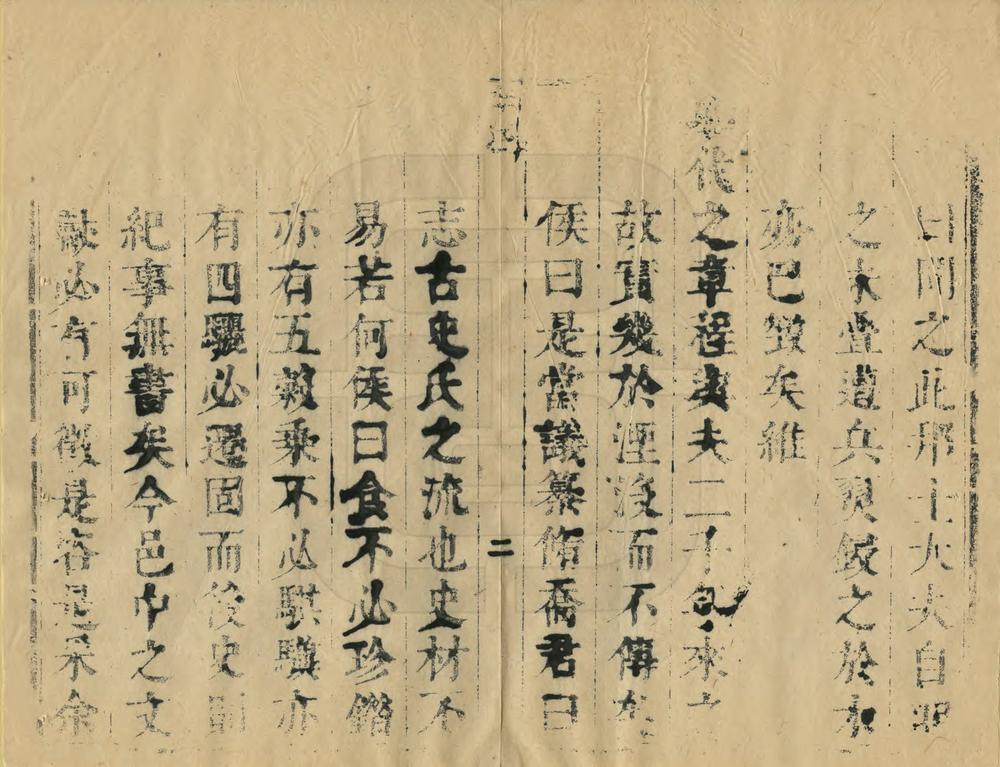 日聞之此邦士大夫自明
之末疊遭兵燹鋟之於木
亦已毀矣維
昭代之章程與夫二千年來之
故實幾於湮沒而不傳矣
侯曰是當議纂脩喬君曰
志古史氏之流也史材不
易若何侯曰食不必珍錯
亦有五穀乘不必騏驥亦
有四驖必遷固而後史則
紀事無書矣今邑中之文
獻必有可徵是咨是采余
二